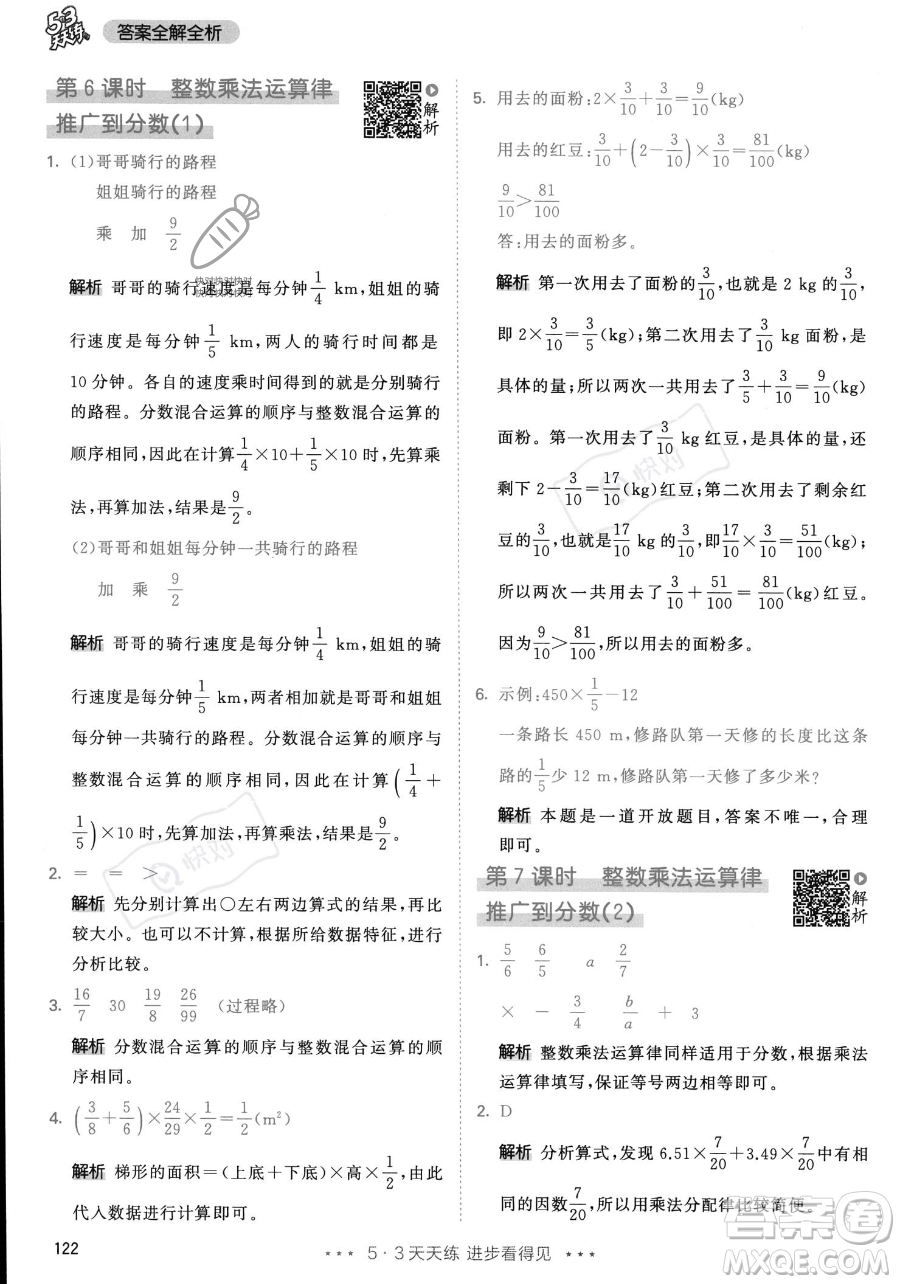 53天天练 答案全解全析
第6课时 整数乘法运算律
推广到分数(1)
解析
1. (1)哥哥骑行的路程
姐姐骑行的路程
乘 加 9/2
快对快对快对
解析 哥哥的骑行速度是每分钟1/4 km,姐姐的骑
行速度是每分钟1/5 km,两人的骑行时间都是
10分钟。各自的速度乘时间得到的就是分别骑行
的路程。分数混合运算的顺序与整数混合运算的
顺序相同,因此在计算1/4×10+1/5×10时,先算乘
法,再算加法,结果是9/2。
(2)哥哥和姐姐每分钟一共骑行的路程
加 乘 9/2
解析 哥哥的骑行速度是每分钟1/4 km,姐姐的骑
行速度是每分钟1/5 km,两者相加就是哥哥和姐姐
每分钟一共骑行的路程。分数混合运算的顺序与
整数混合运算的顺序相同,因此在计算(1/4+
1/5)×10时,先算加法,再算乘法,结果是9/2。
2. = = >
解析 先分别计算出○左右两边算式的结果,再比
较大小。也可以不计算,根据所给数据特征,进行
分析比较。
3. 16/7 30 19/8 26/99 (过程略)
解析 分数混合运算的顺序与整数混合运算的顺
序相同。
4. (3/8+5/6)×24/29×1/2=1/2(m²)
解析 梯形的面积=(上底+下底)×高×1/2,由此
代入数据进行计算即可。
5. 用去的面粉:2×3/10+3/10=9/10(kg)
用去的红豆:3/10+(2-3/10)×3/10=81/100(kg)
9/10>81/100
答:用去的面粉多。
解析 第一次用去了面粉的3/10,也就是2 kg的3/10,
即2×3/10=3/5(kg);第二次用去了3/10 kg面粉,是
具体的量;所以两次一共用去了3/5+3/10=9/10(kg)
面粉。第一次用去了3/10 kg红豆,是具体的量,还
剩下2-3/10=17/10(kg)红豆;第二次用去了剩余红
豆的3/10,就是17/10 kg的3/10,即17/10×3/10=51/100(kg)红豆;
所以两次一共用去了3/10+51/100=81/100(kg)红豆。
因为9/10>81/100,所以用去的面粉多。
6. 示例:450×1/5-12
一条路长450 m,修路队第一天修的长度比这条
路的1/5少12 m,修路队第一天修了多少米?
解析 本题是一道开放题目,答案不唯一,合理
即可。
第7课时 整数乘法运算律
推广到分数(2)
解析
1. 5/6 6/5 a 2/7
× - 3/4 b/a + 3
解析 整数乘法运算律同样适用于分数,根据乘法
运算律填写,保证等号两边相等即可。
2. D
解析 分析算式,发现6.51×7/20+3.49×7/20中有相
同的因数7/20,所以用乘法分配律比较简便。
122
5·3天天练 进步看得见
快对
快对
答案圈